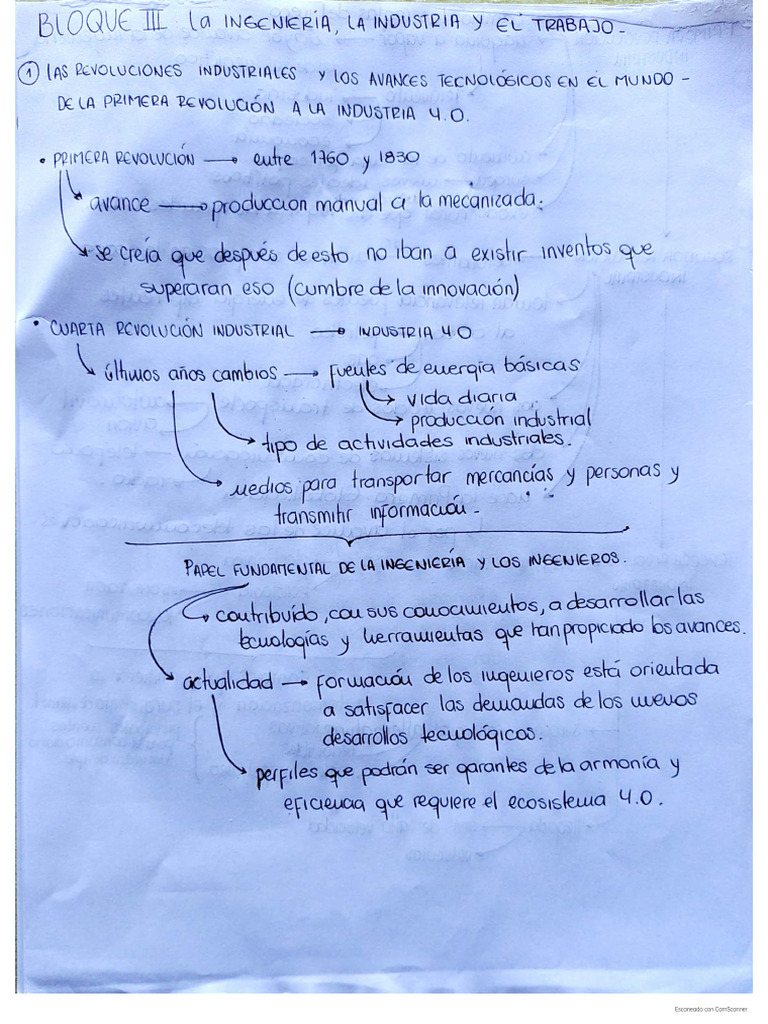 BLOQUE III LA INGENIERÍA, LA INDUSTRIA Y EL TRABAJO-
① LAS REVOLUCIONES INDUSTRIALES Y LOS AVANCES TECNOLÓGICOS EN EL MUNDO-
DE LA PRIMERA REVOLUCIÓN A LA INDUSTRIA 4.0.
• PRIMERA REVOLUCIÓN → entre 1760 y 1830
avance → produccion manual a la mecanizada.
se creía que después de esto no iban a existir inventos que
superaran eso (cumbre de la innovación)
• CUARTA REVOLUCIÓN INDUSTRIAL → INDUSTRIA 4.0
últimos años cambios → fuentes de energía básicas
vida diaria
producción industrial
tipo de actividades industriales.
medios para transportar mercancías y personas y
transmitir información-
PAPEL FUNDAMENTAL DE LA INGENIERÍA Y LOS INGENIEROS.
contribuído, con sus conocimientos, a desarrollar las
tecnologías y herramientas que han propiciado los avances.
actualidad → formación de los ingenieros está orientada
a satisfacer las demandas de los nuevos
desarrollos tecnológicos.
perfiles que podrán ser garantes de la armonía y
eficiencia que requiere el ecosistema 4.0.
Escaneado con CamScanner